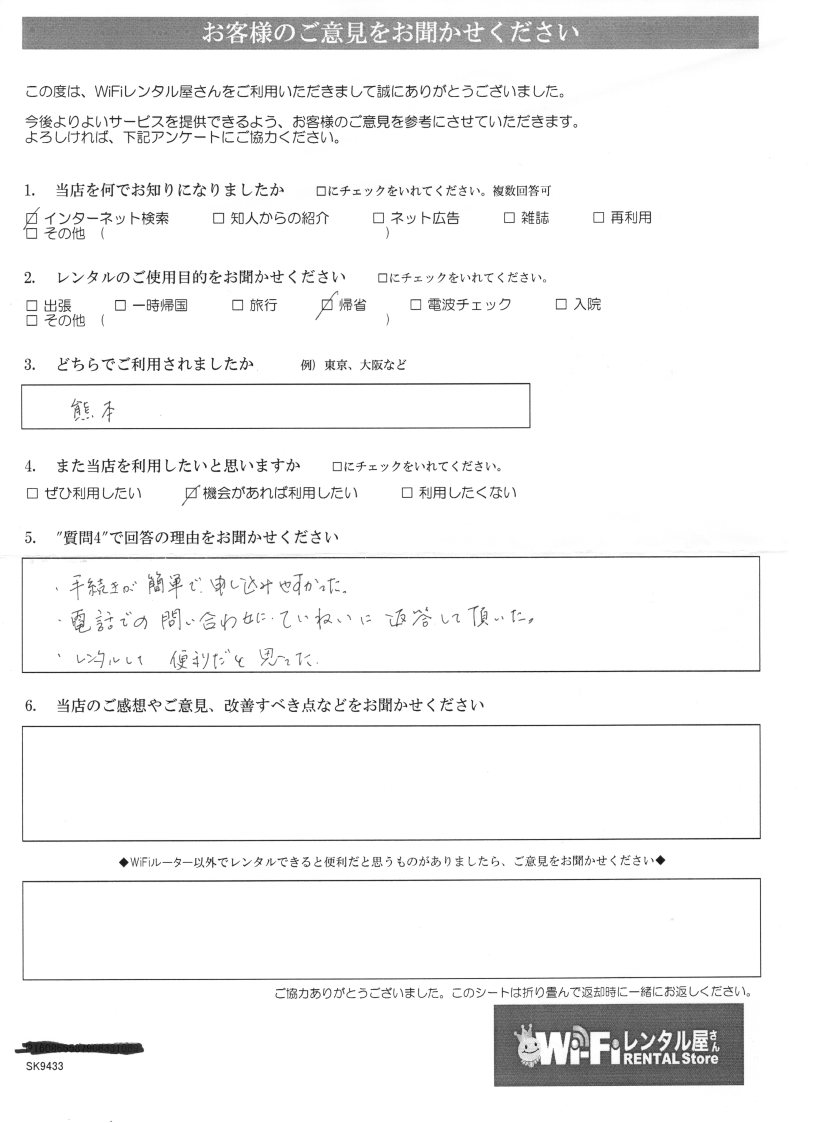 お客様のご意見をお聞かせください
この度は、WiFiレンタル屋さんをご利用いただきまして誠にありがとうございました。
今後よりよいサービスを提供できるよう、お客様のご意見を参考にさせていただきます。
よろしければ、下記アンケートにご協力ください。
1. 当店を何でお知りになりましたか □にチェックをいれてください。複数回答可
☑ インターネット検索 □ 知人からの紹介 □ ネット広告 □ 雑誌 □ 再利用
□ その他 ( )
2. レンタルのご使用目的をお聞かせください □にチェックをいれてください。
□ 出張 □ 一時帰国 □ 旅行 ☑ 帰省 □ 電波チェック □ 入院
□ その他 ( )
3. どちらでご利用されましたか 例) 東京、大阪など
熊本
4. また当店を利用したいと思いますか □にチェックをいれてください。
□ ぜひ利用したい ☑ 機会があれば利用したい □ 利用したくない
5. "質問4"で回答の理由をお聞かせください
・手続きが簡単で、申し込みやすかった。
・電話での問い合わせに、ていねいに返答して頂いた。
・レンタルして便利だと思った.
6. 当店のご感想やご意見、改善すべき点などをお聞かせください
◆WiFiルーター以外でレンタルできると便利だと思うものがありましたら、ご意見をお聞かせください◆
ご協力ありがとうございました。このシートは折り畳んで返却時に一緒にお返しください。
Wi-Fiレンタル屋さん
RENTAL Store
SK9433